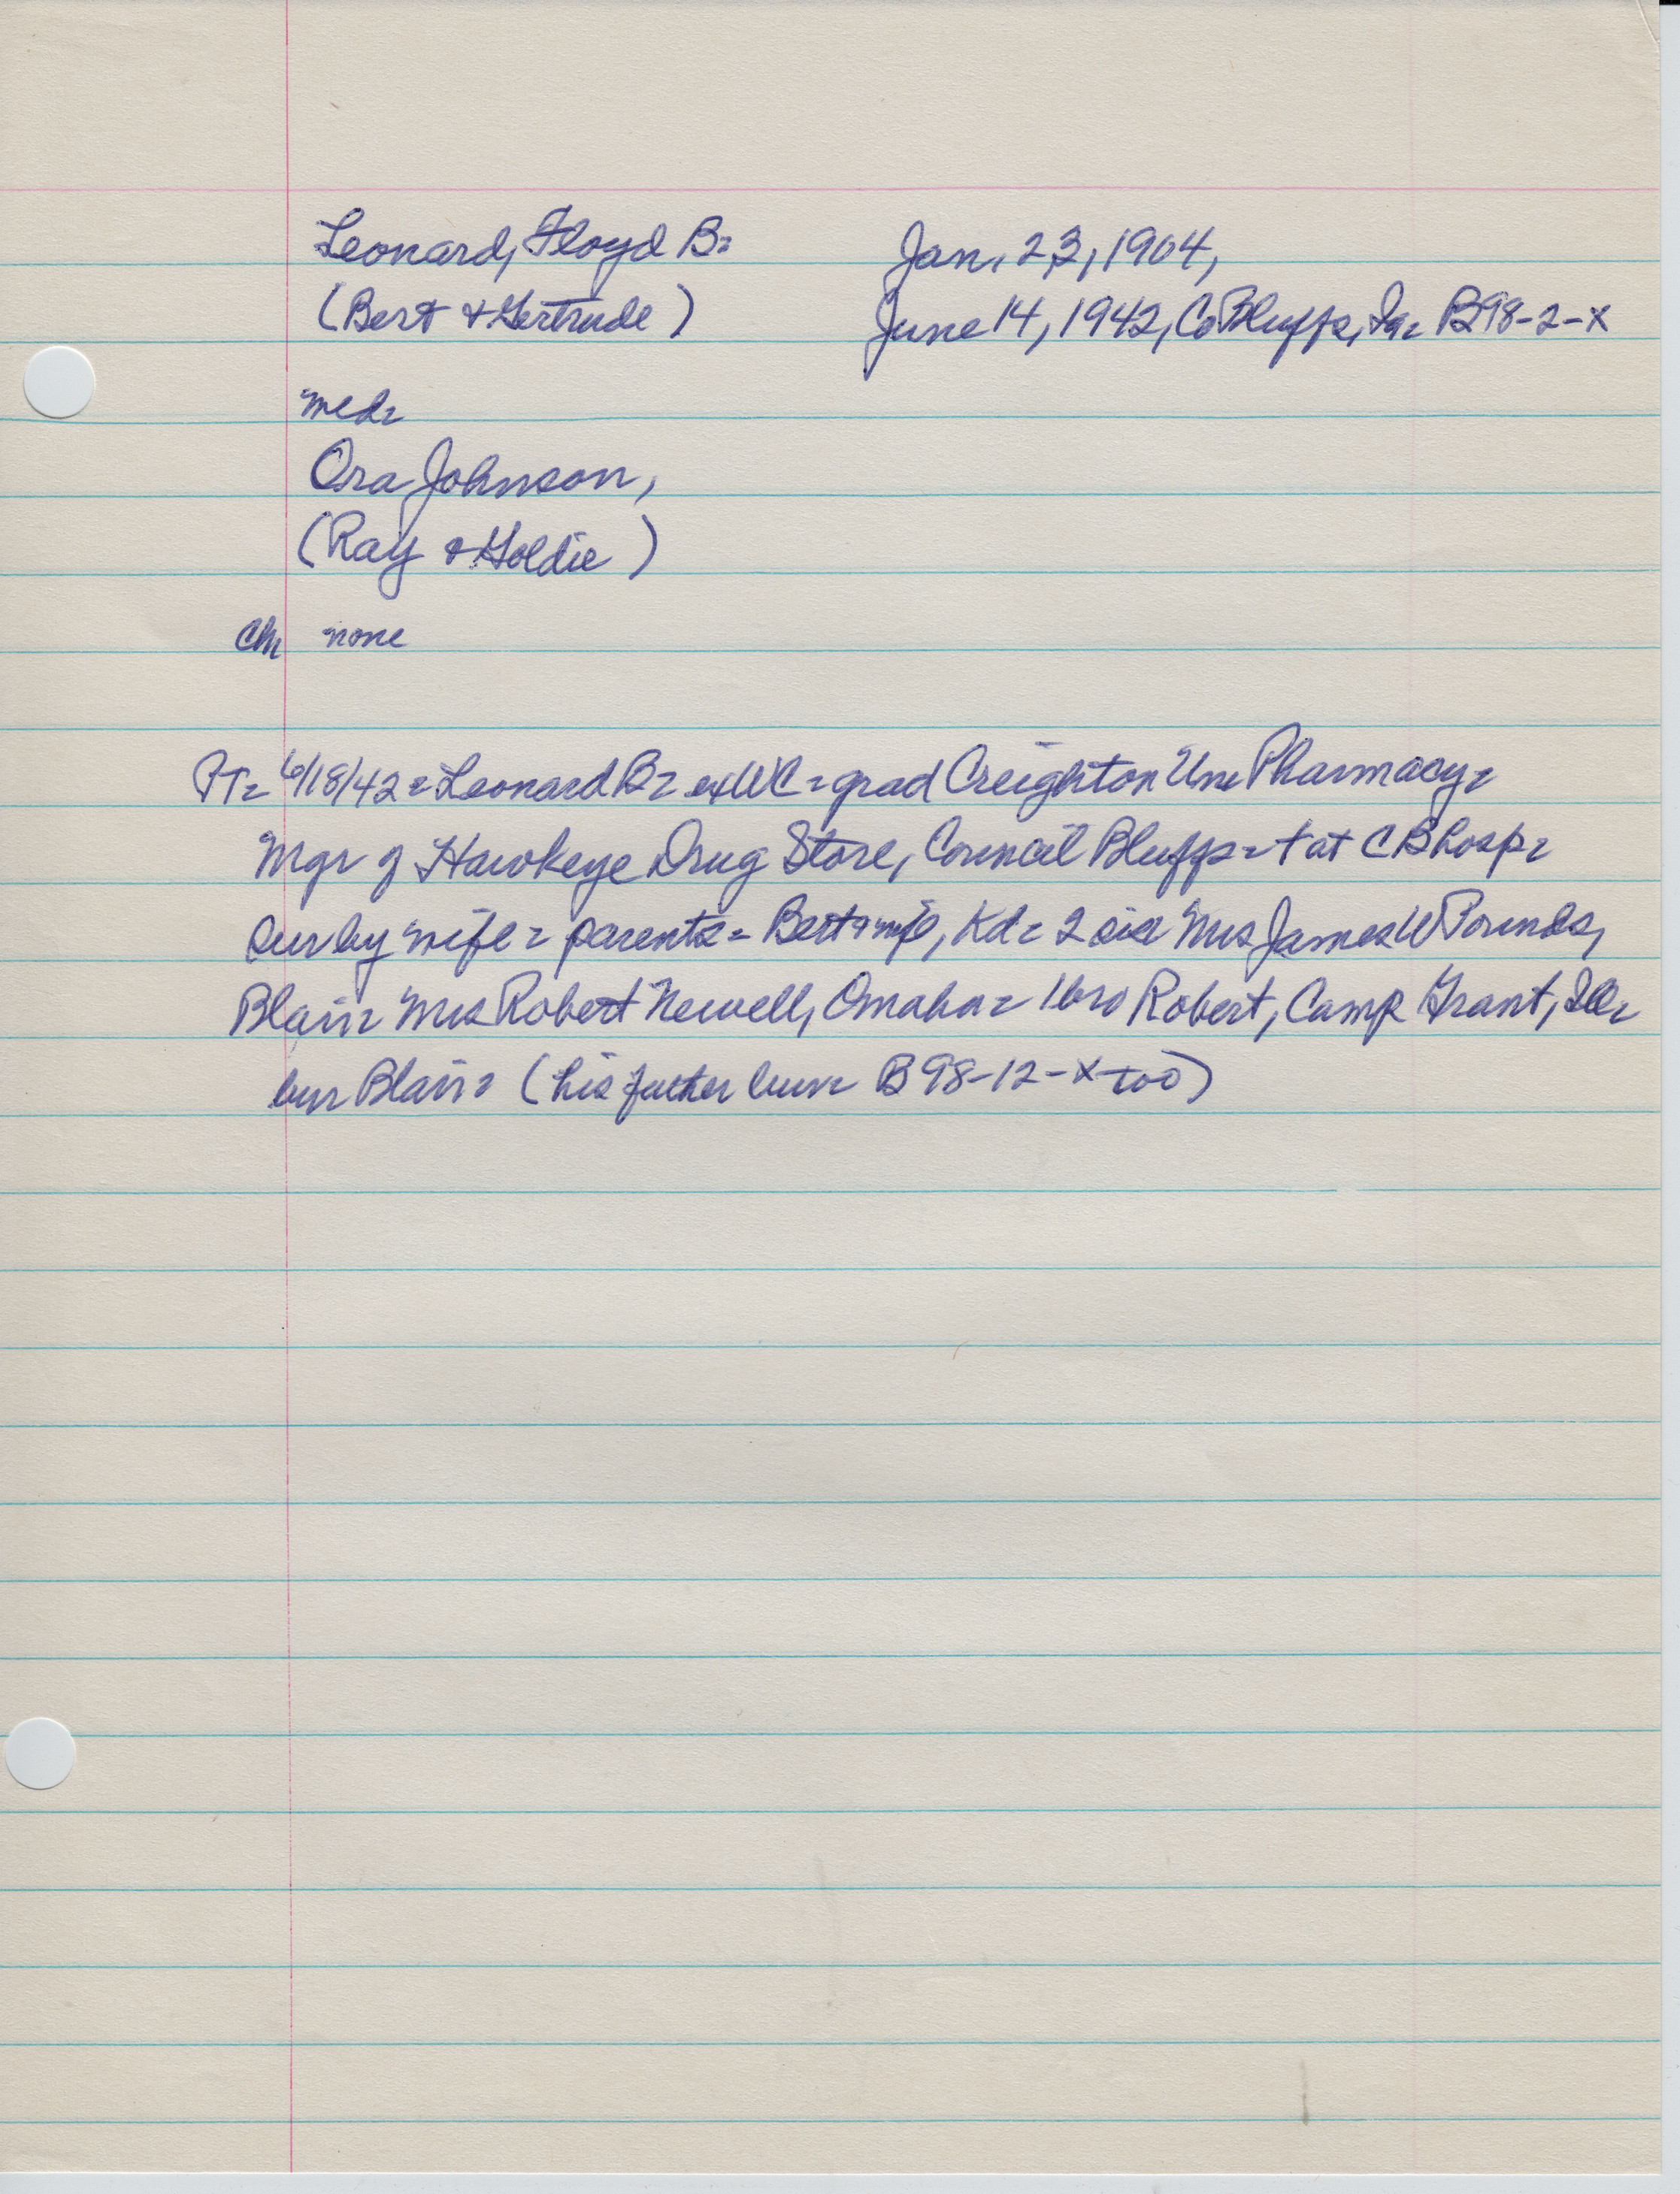 Leonard, Floyd B= Jan. 23, 1904,
(Bert & Gertrude) June 14, 1942, Co Bluffs, Ia= B98-2-X
med=
Ora Johnson,
(Ray & Goldie)
Ch none
PT= 6/18/42= Leonard B= ex WC= grad Creighton Un= Pharmacy=
Mgr of Hawkeye Drug Store, Council Bluffs= + at CB hosp=
sur by wife= parents= Bert & wife, Kd= 2 sis Mrs James W Pounds,
Blair= Mrs Robert Newell, Omaha= 1 bro Robert, Camp Grant, Ill=
bur Blair= (his father bur= B98-12-X too)